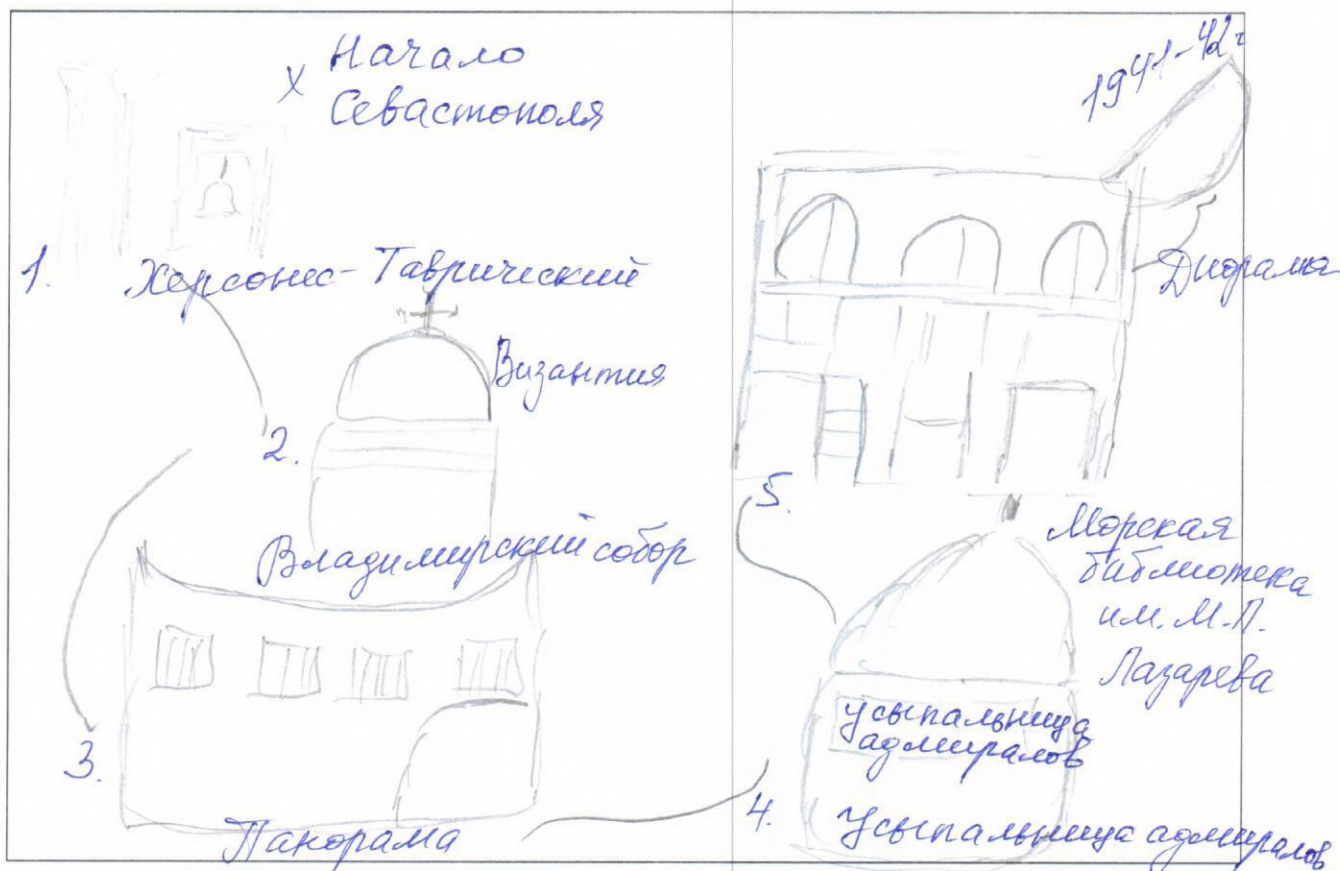 х Начало
Севастополя
1. Херсонес-Таврический
Византия
2.
Владимирский собор
3.
Панорама
1941-42г
Диорама
5.
Морская
библиотека
им. М.П.
Лазарева
усыпальница
адмиралов
4. Усыпальница адмиралов